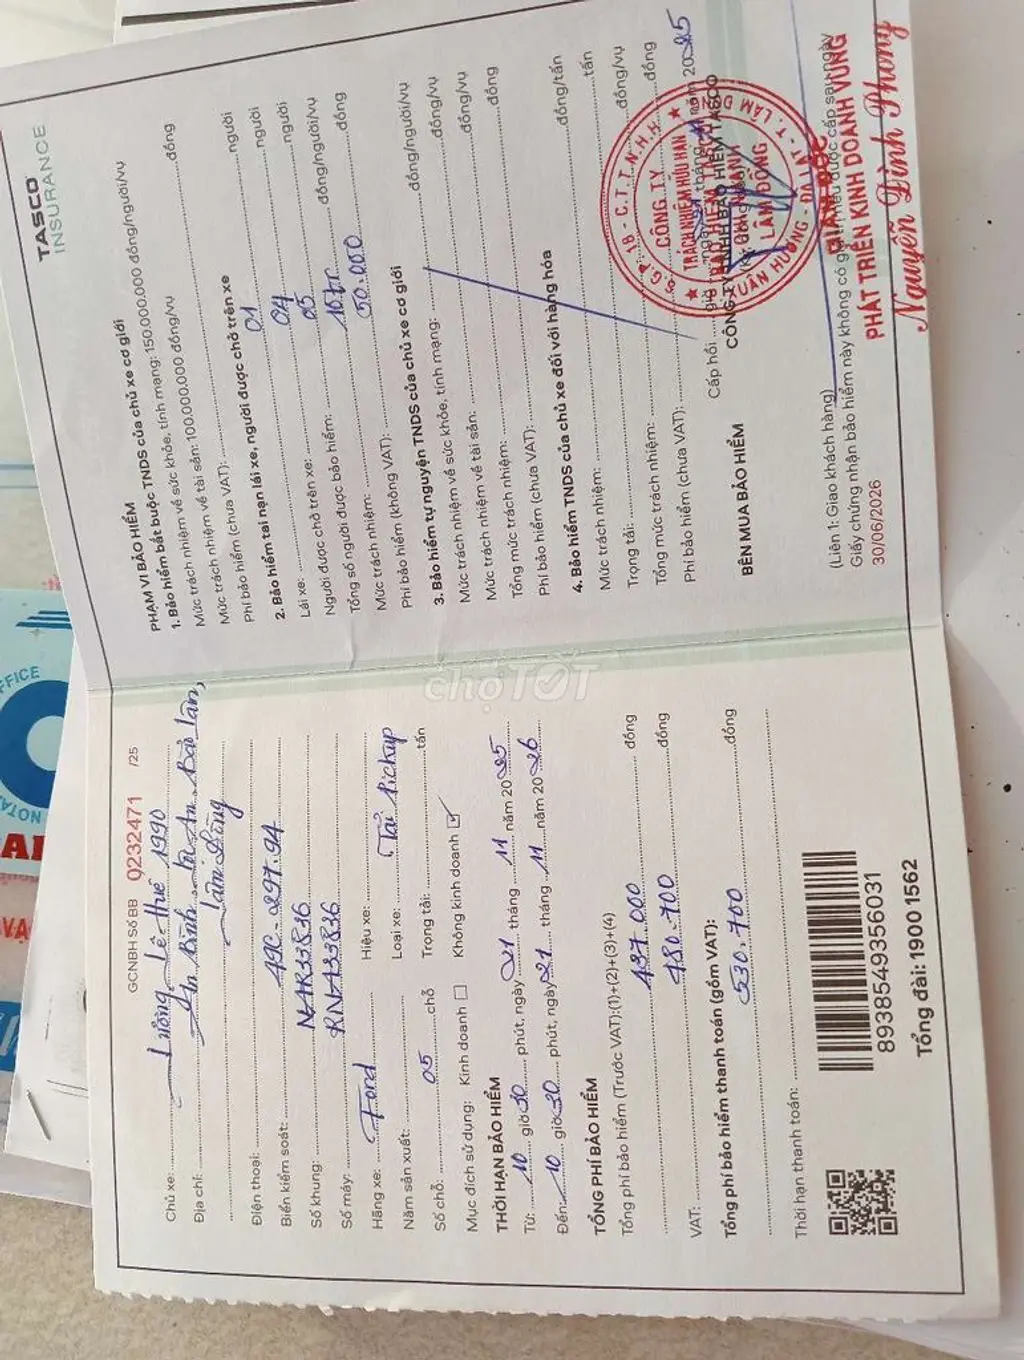 GCNBH Số BB 02232471 /25
Chủ xe: Lương Lê Thuê 1990
Địa chỉ: An Bình, Bảo Lân,
Lâm Đồng
Điện thoại:
Biển kiểm soát: 49C-297.94
Số khung: NAR33836
Số máy: RNA33836
Hãng xe: Ford Hiệu xe:
Năm sản xuất: Loại xe: Tải Pickup
Số chỗ: 05 chỗ Trọng tải: tấn
Mục đích sử dụng: Kinh doanh ☐ Không kinh doanh ☑
THỜI HẠN BẢO HIỂM
Từ: 10 giờ 30 phút, ngày 21 tháng 11 năm 2025
Đến: 10 giờ 30 phút, ngày 21 tháng 11 năm 2026
TỔNG PHÍ BẢO HIỂM
Tổng phí bảo hiểm (Trước VAT):(1)+(2)+(3)+(4)
437.000 đồng
VAT: 480.700 đồng
Tổng phí bảo hiểm thanh toán (gồm VAT):
530.700 đồng
Thời hạn thanh toán:
8938549356031
Tổng đài: 19001562
TASCO
INSURANCE
PHẠM VI BẢO HIỂM
1. Bảo hiểm bắt buộc TNDS của chủ xe cơ giới
Mức trách nhiệm về sức khỏe, tính mạng: 150.000.000 đồng/người/vụ
Mức trách nhiệm về tài sản: 100.000.000 đồng/vụ
Phí bảo hiểm (chưa VAT): đồng
2. Bảo hiểm tai nạn lái xe, người được chở trên xe
Lái xe: 01 người
Người được chở trên xe: 04 người
Tổng số người được bảo hiểm: 05 người
Mức trách nhiệm: 10tr đồng/người/vụ
Phí bảo hiểm (không VAT): 50.000 đồng
3. Bảo hiểm tự nguyện TNDS của chủ xe cơ giới
Mức trách nhiệm về sức khỏe, tính mạng: đồng/người/vụ
Mức trách nhiệm về tài sản: đồng/vụ
Tổng mức trách nhiệm: đồng/vụ
Phí bảo hiểm (chưa VAT): đồng
4. Bảo hiểm TNDS của chủ xe đối với hàng hóa
Mức trách nhiệm: đồng/tấn
Trọng tải: tấn
Tổng mức trách nhiệm: đồng/vụ
Phí bảo hiểm (chưa VAT): đồng
Cấp hồi giờ ngày 21 tháng 11 năm 2025
BÊN MUA BẢO HIỂM
CÔNG TY TNHH BẢO HIỂM TASCO
S.G.P: 18 - C.T.T.N.H.H
CÔNG TY
TRÁCH NHIỆM HỮU HẠN
BẢO HIỂM TASCO
CHI NHÁNH
LÂM ĐỒNG
XUÂN HƯƠNG - ĐÀ LẠT - T. LÂM ĐỒNG
GIÁM ĐỐC
PHÁT TRIỂN KINH DOANH VÙNG
Nguyễn Đình Phong
(Liên 1: Giao khách hàng)
Giấy chứng nhận bảo hiểm này không có giá trị nếu được cấp sau ngày
30/06/2026
chợTỐT
OFFICE